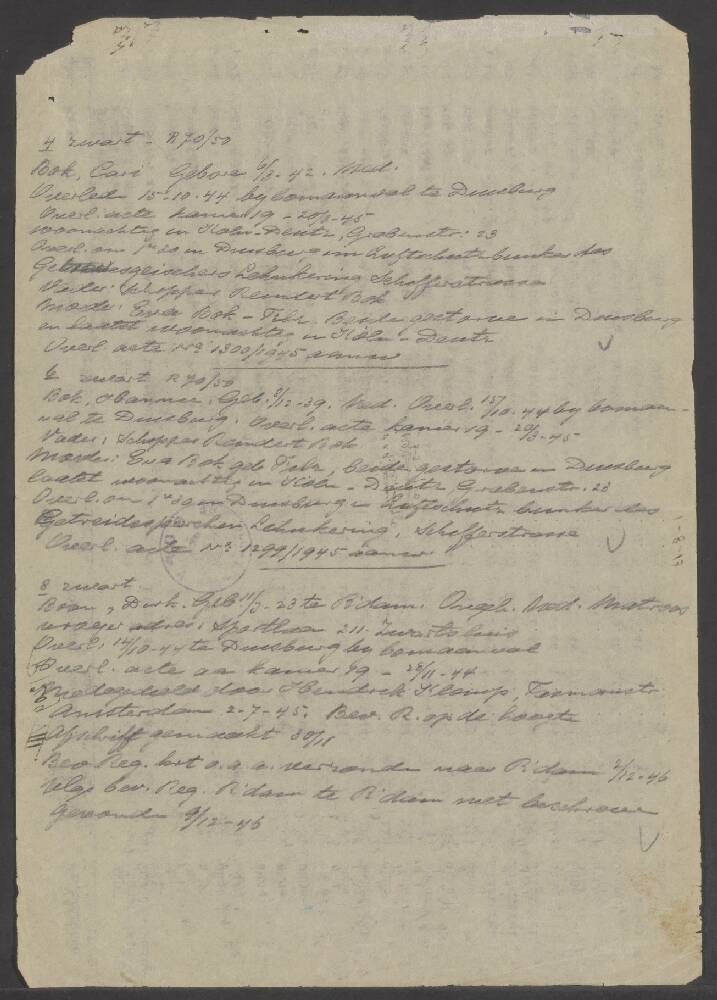 4 zwart - R70/50
Bok, Cari Gebore 6/3-42. Ned.
Overled 15-10-44 by bomaanval te Duisburg
Overl. acte kamer 19 - 20/3-45
woonachtig in Köln-Deutz, Grabenstr: 23
Overl. om 1 uur 30 in Duisburg im Luftschutzbunker des
Lehnkering Schofferstrasse
Vader: Schipper Reindert Bok
Moeder: Eva Bok - Felz. Beide gestorve in Duisburg
en laatst woonachtig in Köln - Deutz
Overl. acte No 1300/1945 aanw
6 zwart R70/50
Bok, Hannie, Geb. 8/12-39. Ned. Overl. 15/10-44 by bomaan-
val te Duisburg. Overl. acte kamer 19 - 20/3-45
Vader: Schipper Reindert Bok
Moeder: Eva Bok geb Felz, beide gestorve in Duisburg
laatst woonachtig in Köln - Deutz Grabenstr. 23
Overl. om 1 uur 30 in Duisburg in Luftschutz bunker des
Getreidespeicher Lehnkering, Schifferstrasse
Overl. acte No 1299/1945 aanw
8 zwart
Boon, Dirk. Geb 11/3-23 te R'dam. Ongeh. Ned. Matroos
vroeger adres: Sportlaan 211. Zwartsluis
Overl. 14/10-44 te Duisburg by bomaanval
Overl. acte aa kamer 19 - 28/11-44
door Hendrik Klomp,
Amsterdam 2-7-45. Bev. R. op de hoogte
Afschrift gemaakt 30/11
Bev Reg. hrt o.a.a. verzonde naar R'dam 2/12-46
Volgs bev. Reg. R'dam te R'dam niet beschreve
gevonde 9/12-46